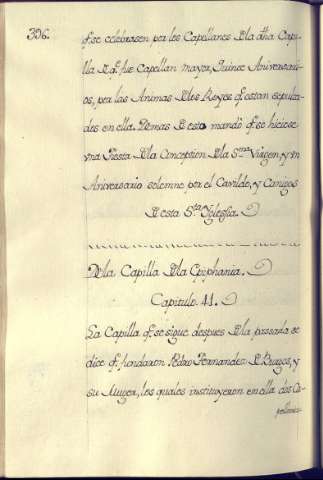 396.
q̃. se celebrasen por los Capellanes Dla dha Capi-
lla D q̃. fue Capellan mayor, Quince Aniversari-
os, por las Animas Dlos Reyes q̃. estan sepulta-
dos en ella. Demas D esto mandò q̃. se hiciese
vna Fiesta Dla Conception Dla S.ma Virgen, y vn
Aniversario solemne por el Cavildo, y Canigos
D esta S.ta Yglesia.
Dla Capilla Dla Epiphania.
Capitulo. 41.
La Capilla q̃. se sigue despues Dla passada se
dice q̃. fundaron Pedro Fernandez D Burgos, y
su Muger, los quales instituyeron en ella dos Ca-
pellanias